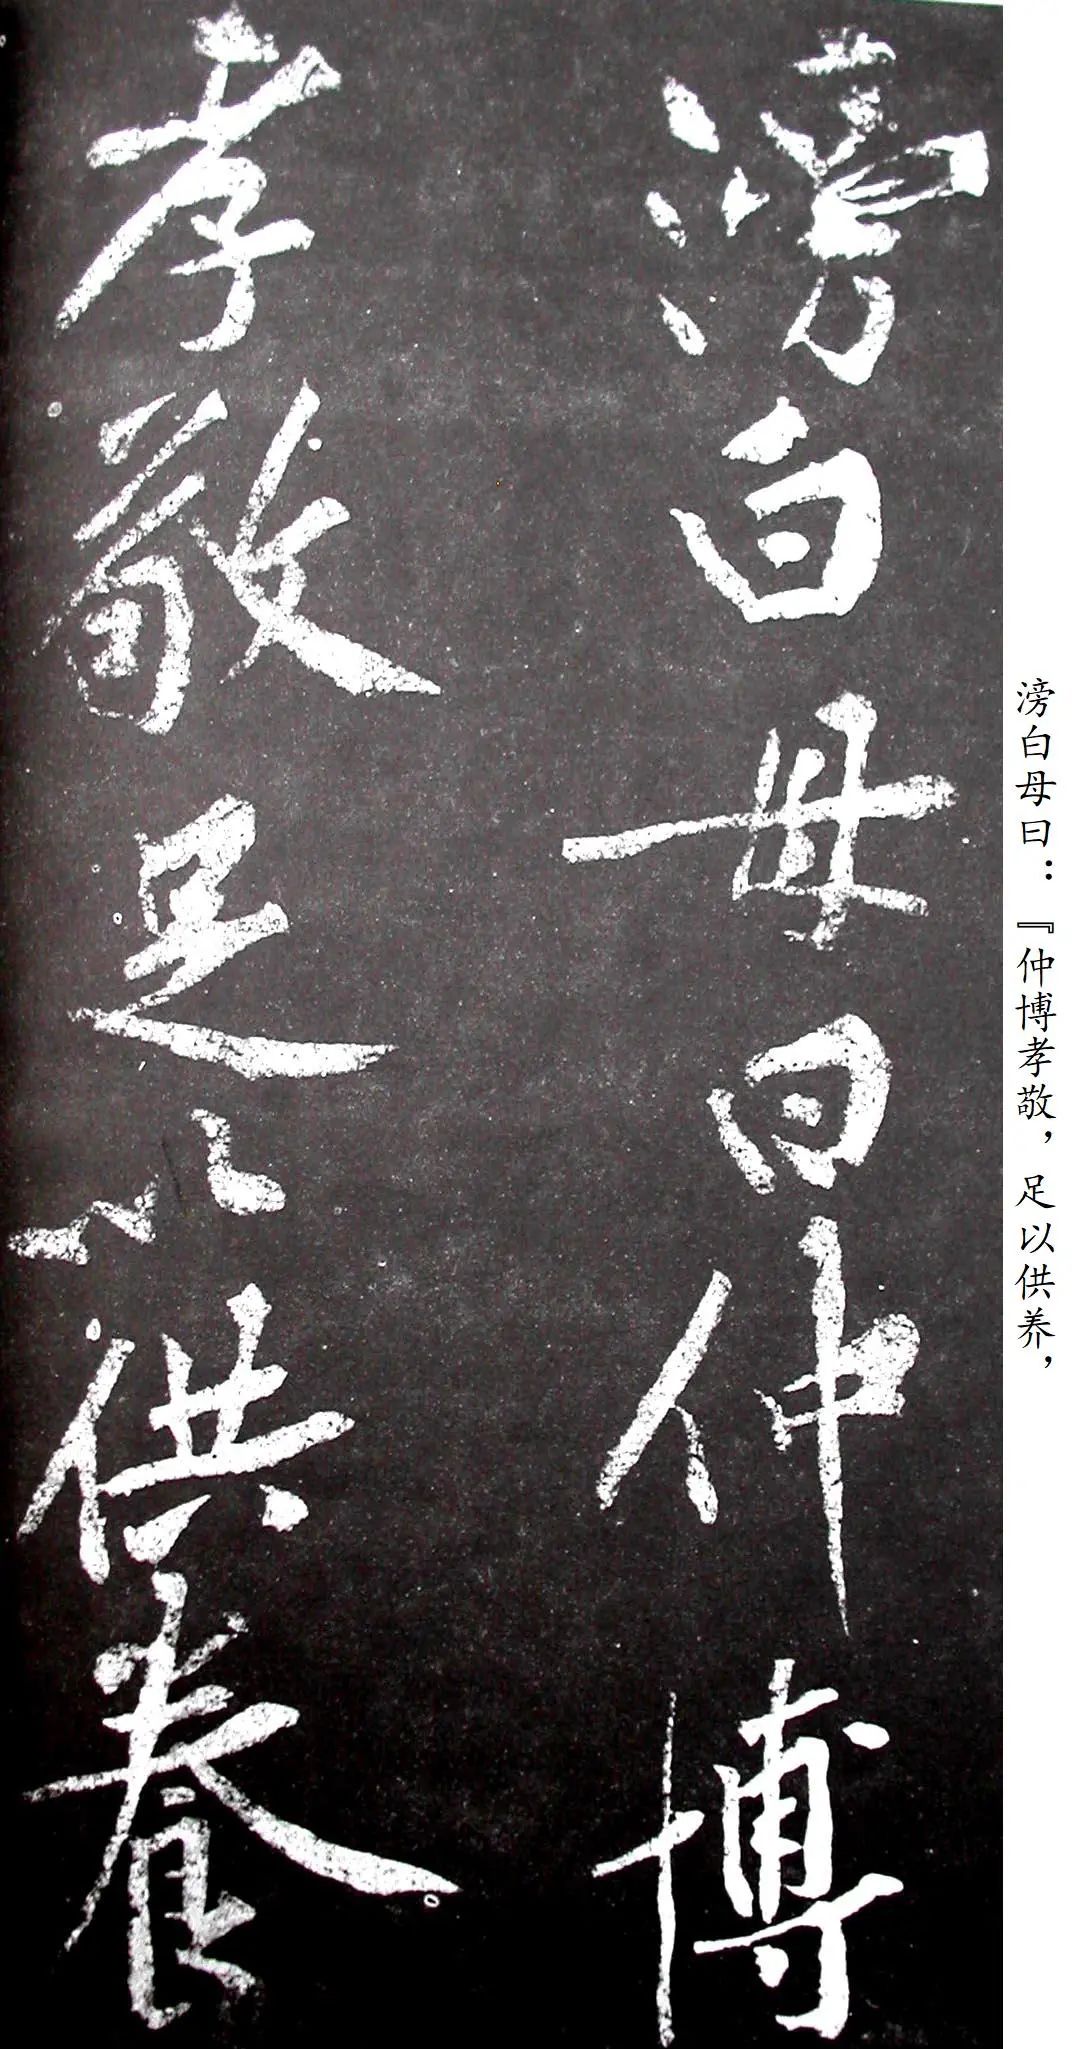 滂白母曰仲博
孝敬足以供養
滂白母曰：『仲博孝敬，足以供养，